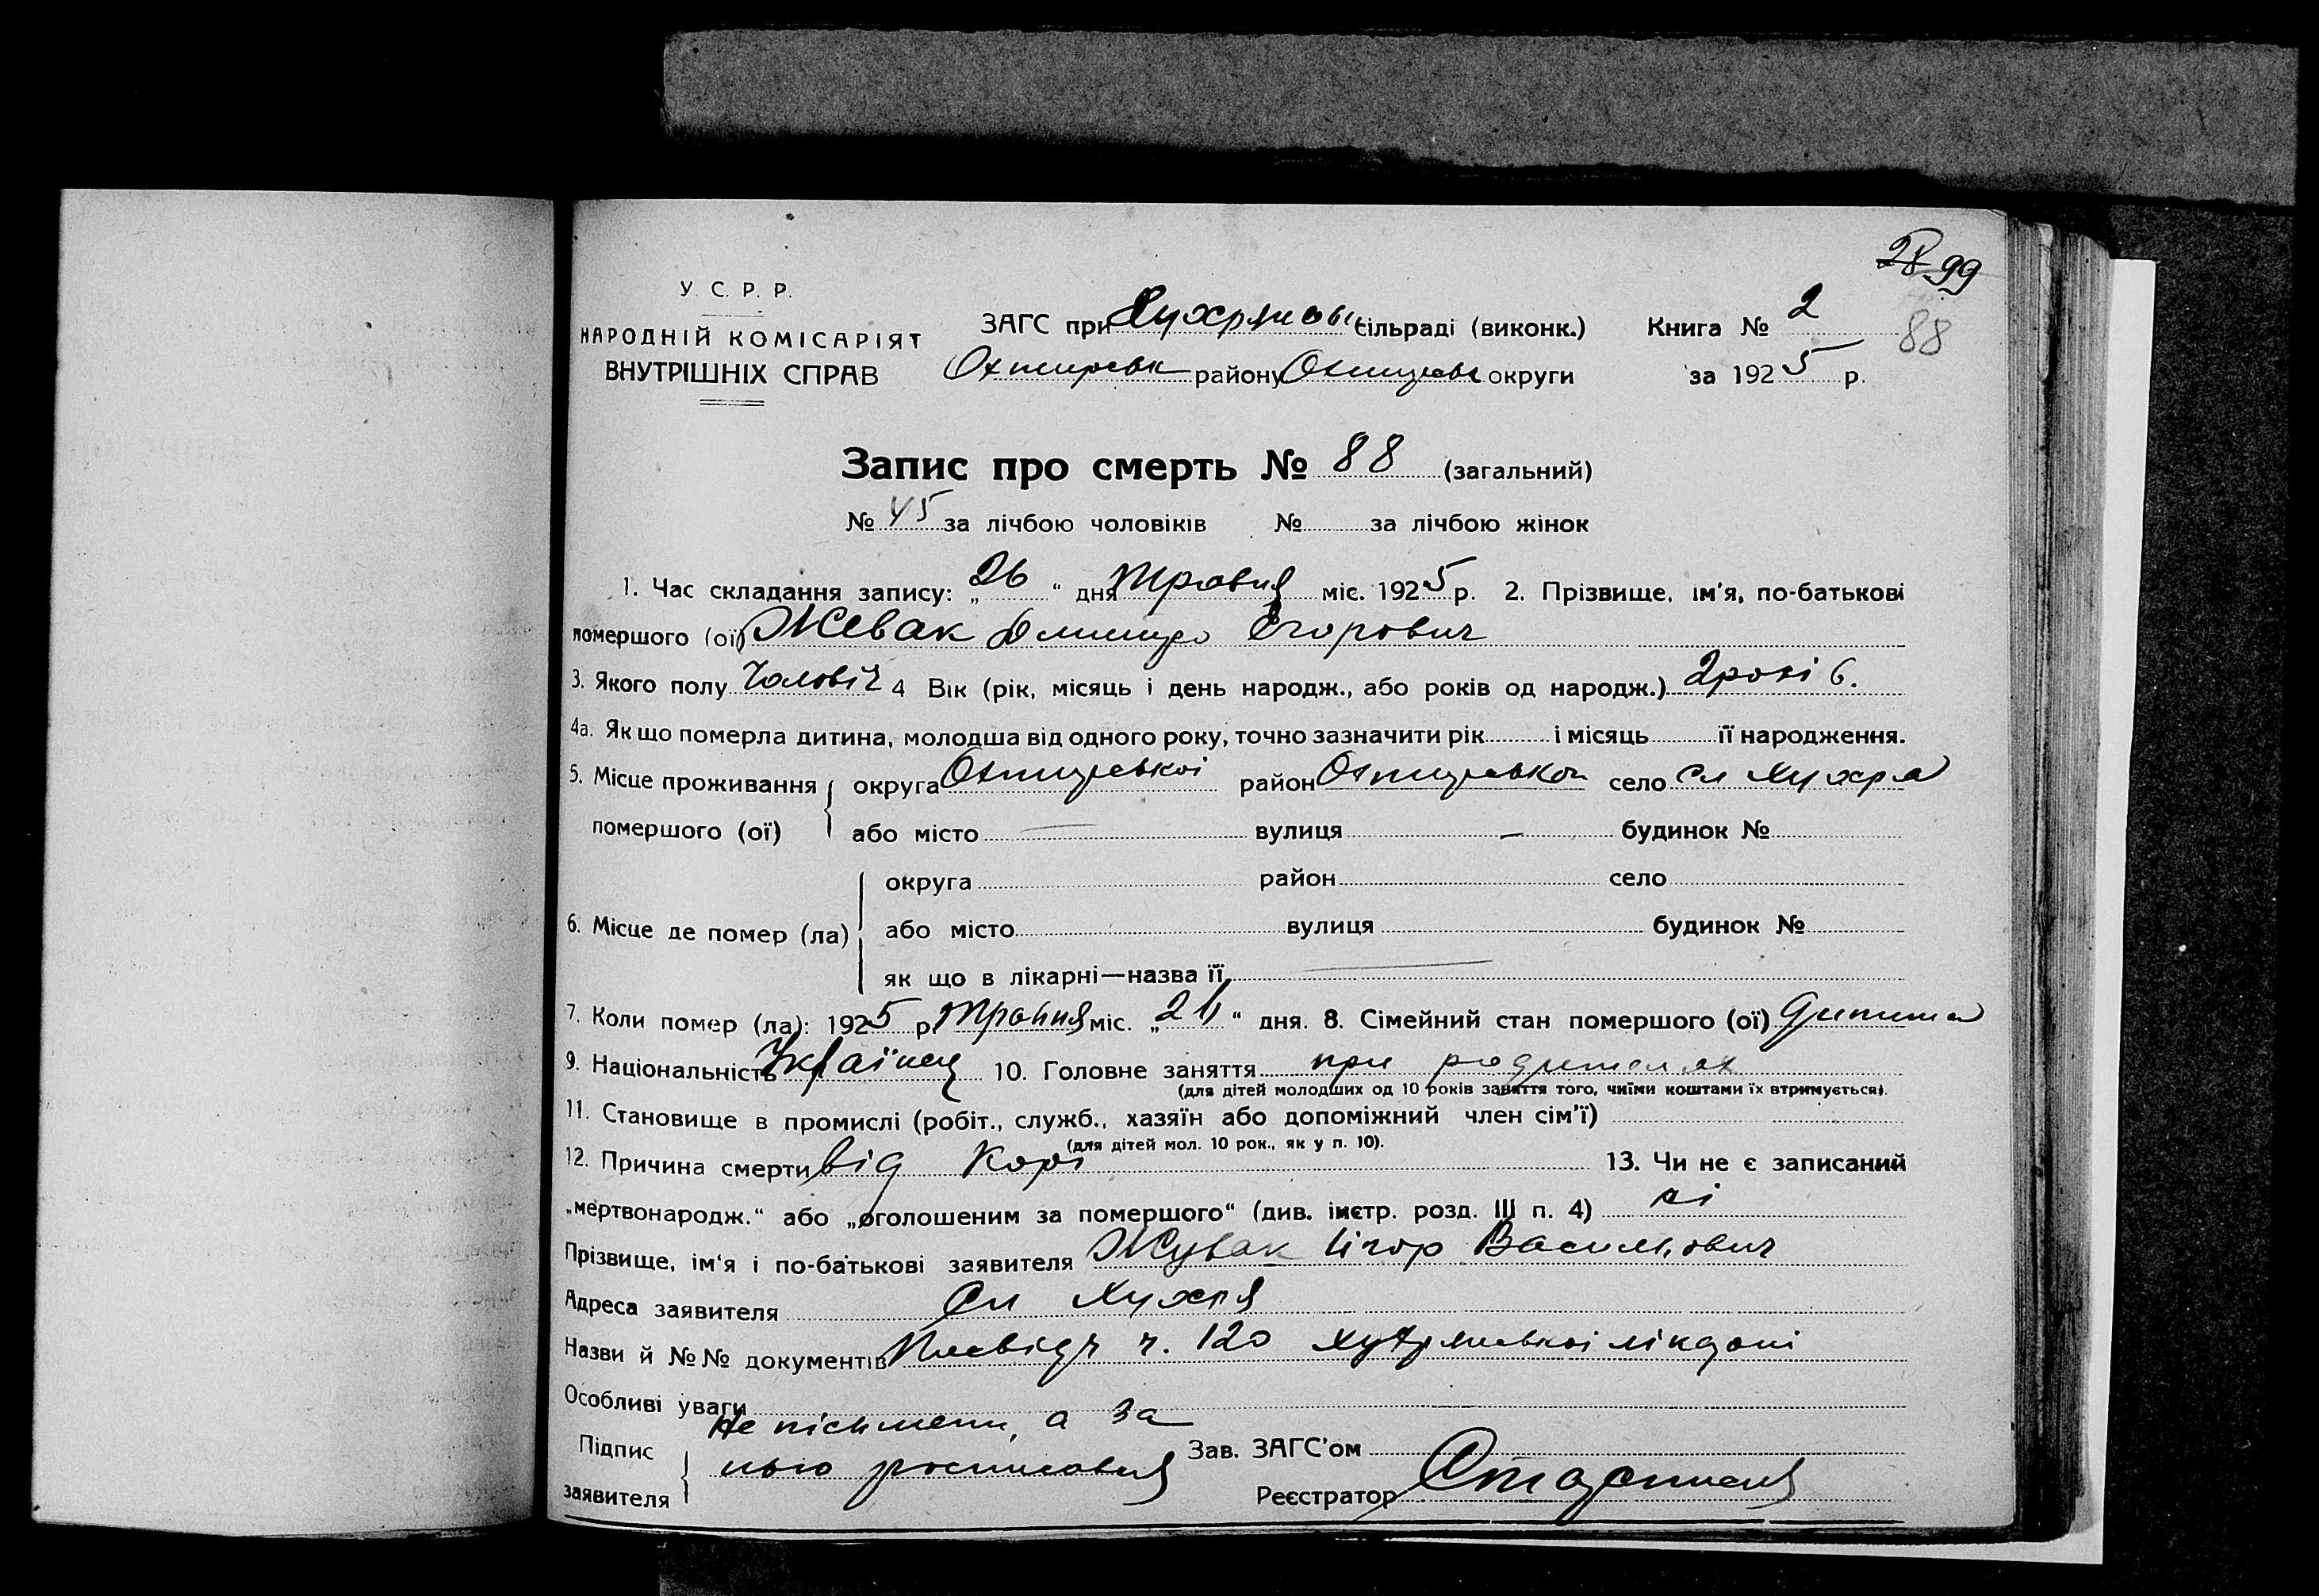 28 99
У. С. Р. Р.
НАРОДНІЙ КОМІСАРІЯТ
ВНУТРІШНІХ СПРАВ
ЗАГС при сільраді (виконк.) Книга № 2
88
Охтирськ району Охтирськ округи за 1925 р.
Запис про смерть № 88 (загальний)
№ 45 за лічбою чоловіків № за лічбою жінок
1. Час складання запису: „26“ дня Травня міс. 1925 р. 2. Прізвище, ім'я, по-батькові
помершого (ої) Жевак Дмитро Єгорович
3. Якого полу Чоловіч 4 Вік (рік, місяць і день народж., або років од народж.) 2 рокі 6.
4а. Як що померла дитина, молодша від одного року, точно зазначити рік і місяць її народження.
5. Місце проживання округа Охтирської район Охтирської село сл Хухря
помершого (ої) або місто — вулиця — будинок №
округа район село
6. Місце де помер (ла) або місто вулиця будинок №
як що в лікарні—назва її
7. Коли помер (ла): 1925 р. Травня міс. „ “ дня. 8. Сімейний стан помершого (ої) Дитина
9. Національність Українец 10. Головне заняття при родителях
(для дітей молодших од 10 років заняття того, чиїми коштами їх втримується).
11. Становище в промислі (робіт., служб., хазяїн або допоміжний член сім'ї)
(для дітей мол. 10 рок., як у п. 10).
12. Причина смерти від Корі 13. Чи не є записаний
„мертвонародж.“ або „оголошеним за помершого“ (див. інстр. розд. III п. 4) ні
Прізвище, ім'я і по-батькові заявителя Жувак Ігор Васильович
Адреса заявителя Сл Хухря
Назви й №№ документів ч. 120
Особливі уваги
Не пісьмени, а за
Підпис Зав. ЗАГС'ом
нього росписався
заявителя Реєстратор